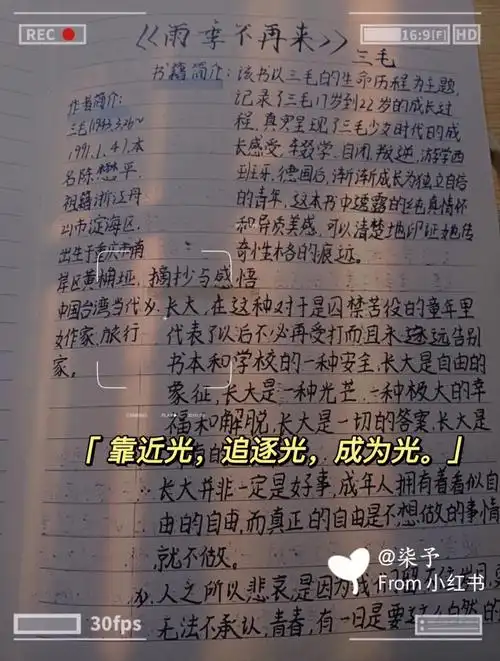 REC
16:9[F]
HD
《雨季不再来》
三毛
书籍简介：该书以三毛的生命历程为主题，
记录了三毛17岁到22岁的成长过
程，真实呈现了三毛少女时代的成
长感受，逃学，自闭，叛逆，游学西
班牙，德国后，渐渐成长为独立自信
的青年，这本书中透露的纯真情怀
和异质美感，可以清楚地印证她传
奇性格的痕迹。
作者简介：
三毛(1943.3.26~
1991.1.4)，本
名陈懋平，
祖籍浙江舟
山市定海区，
出生于重庆市南
岸区黄桷垭，
中国台湾当代
女作家，旅行
家。
摘抄与感悟
长大，在这种对于是囚禁苦役的童年里
代表了以后不必再受打而且永远告别
书本和学校的一种安全，长大是自由的
象征，长大是一种光芒，一种极大的幸
福和解脱，长大是一切的答案，长大是
「靠近光，追逐光，成为光。」
长大并非一定是好事，成年人拥有着看似自
由的自由，而真正的自由是不想做的事情
就不做。
人之所以悲哀，是因为我们
无法不承认，青春，有一日是要这么自然的
@柒予
From 小红书
30fps